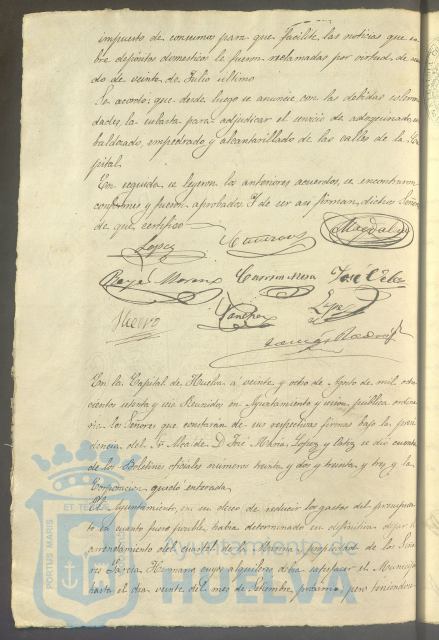 impuesto de consumos para que facilite las noticias que so
bre depósitos domesticos le fueron reclamadas por virtud de acuer
do de veinte de Julio ultimo
Se acordó: que desde luego se anuncie con las debidas solemni
dades, la subasta para adjudicar el servicio de adoquinado, em
baldosado, empedrado y alcantarillado de las calles de la Ca
pital.
En seguida se leyeron los anteriores acuerdos, se encontraron
conformes y fueron aprobados. Y de ser asi firman dichos Señores
de que certifico
Lopez
Magdalena
Rojé Moreno Guerrero Mesa José
Sanchez
En la Capital de Huelva á veinte y ocho de Agosto de mil ocho
cientos setenta y seis Reunidos en Ayuntamiento y sesion publica ordina
ria los Señores que constaran de sus respectivas firmas bajo la presi
dencia del Sr Alcalde D. José Maria Lopez y se dió cuenta
de los Boletines oficiales numeros treinta y dos y treinta y tres y la
Corporacion quedó enterada.
El Ayuntamiento, en su deseo de reducir los gastos del presupues
to en cuanto fuere posible, habia determinado en definitiva dejar el
arrendamiento del cuartel de la propiedad de los Seño
res Garcia Hermanos cuyos alquileres debia satisfacer el Municipio
hasta el dia veinte del mes de Setiembre próximo; pero teniendo
PORTUS MARIS
ET TERRE
Ayuntamiento de
HUELVA